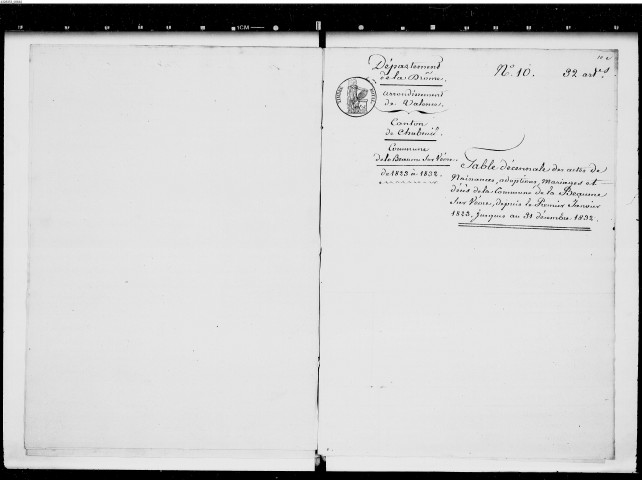 Département
de la Drôme.
arrondissement
de Valence.
Canton
de Chabeuil.
Commune
de la Beaume Sur Véore.
de 1823 à 1832.
N.º 10. 32 act.es
Table décennale des actes de
Naissances, adoptions, mariages et
décès de la Commune de la Beaume
Sur Véore, depuis le Premier Janvier
1823, jusques au 31 décembre 1832.